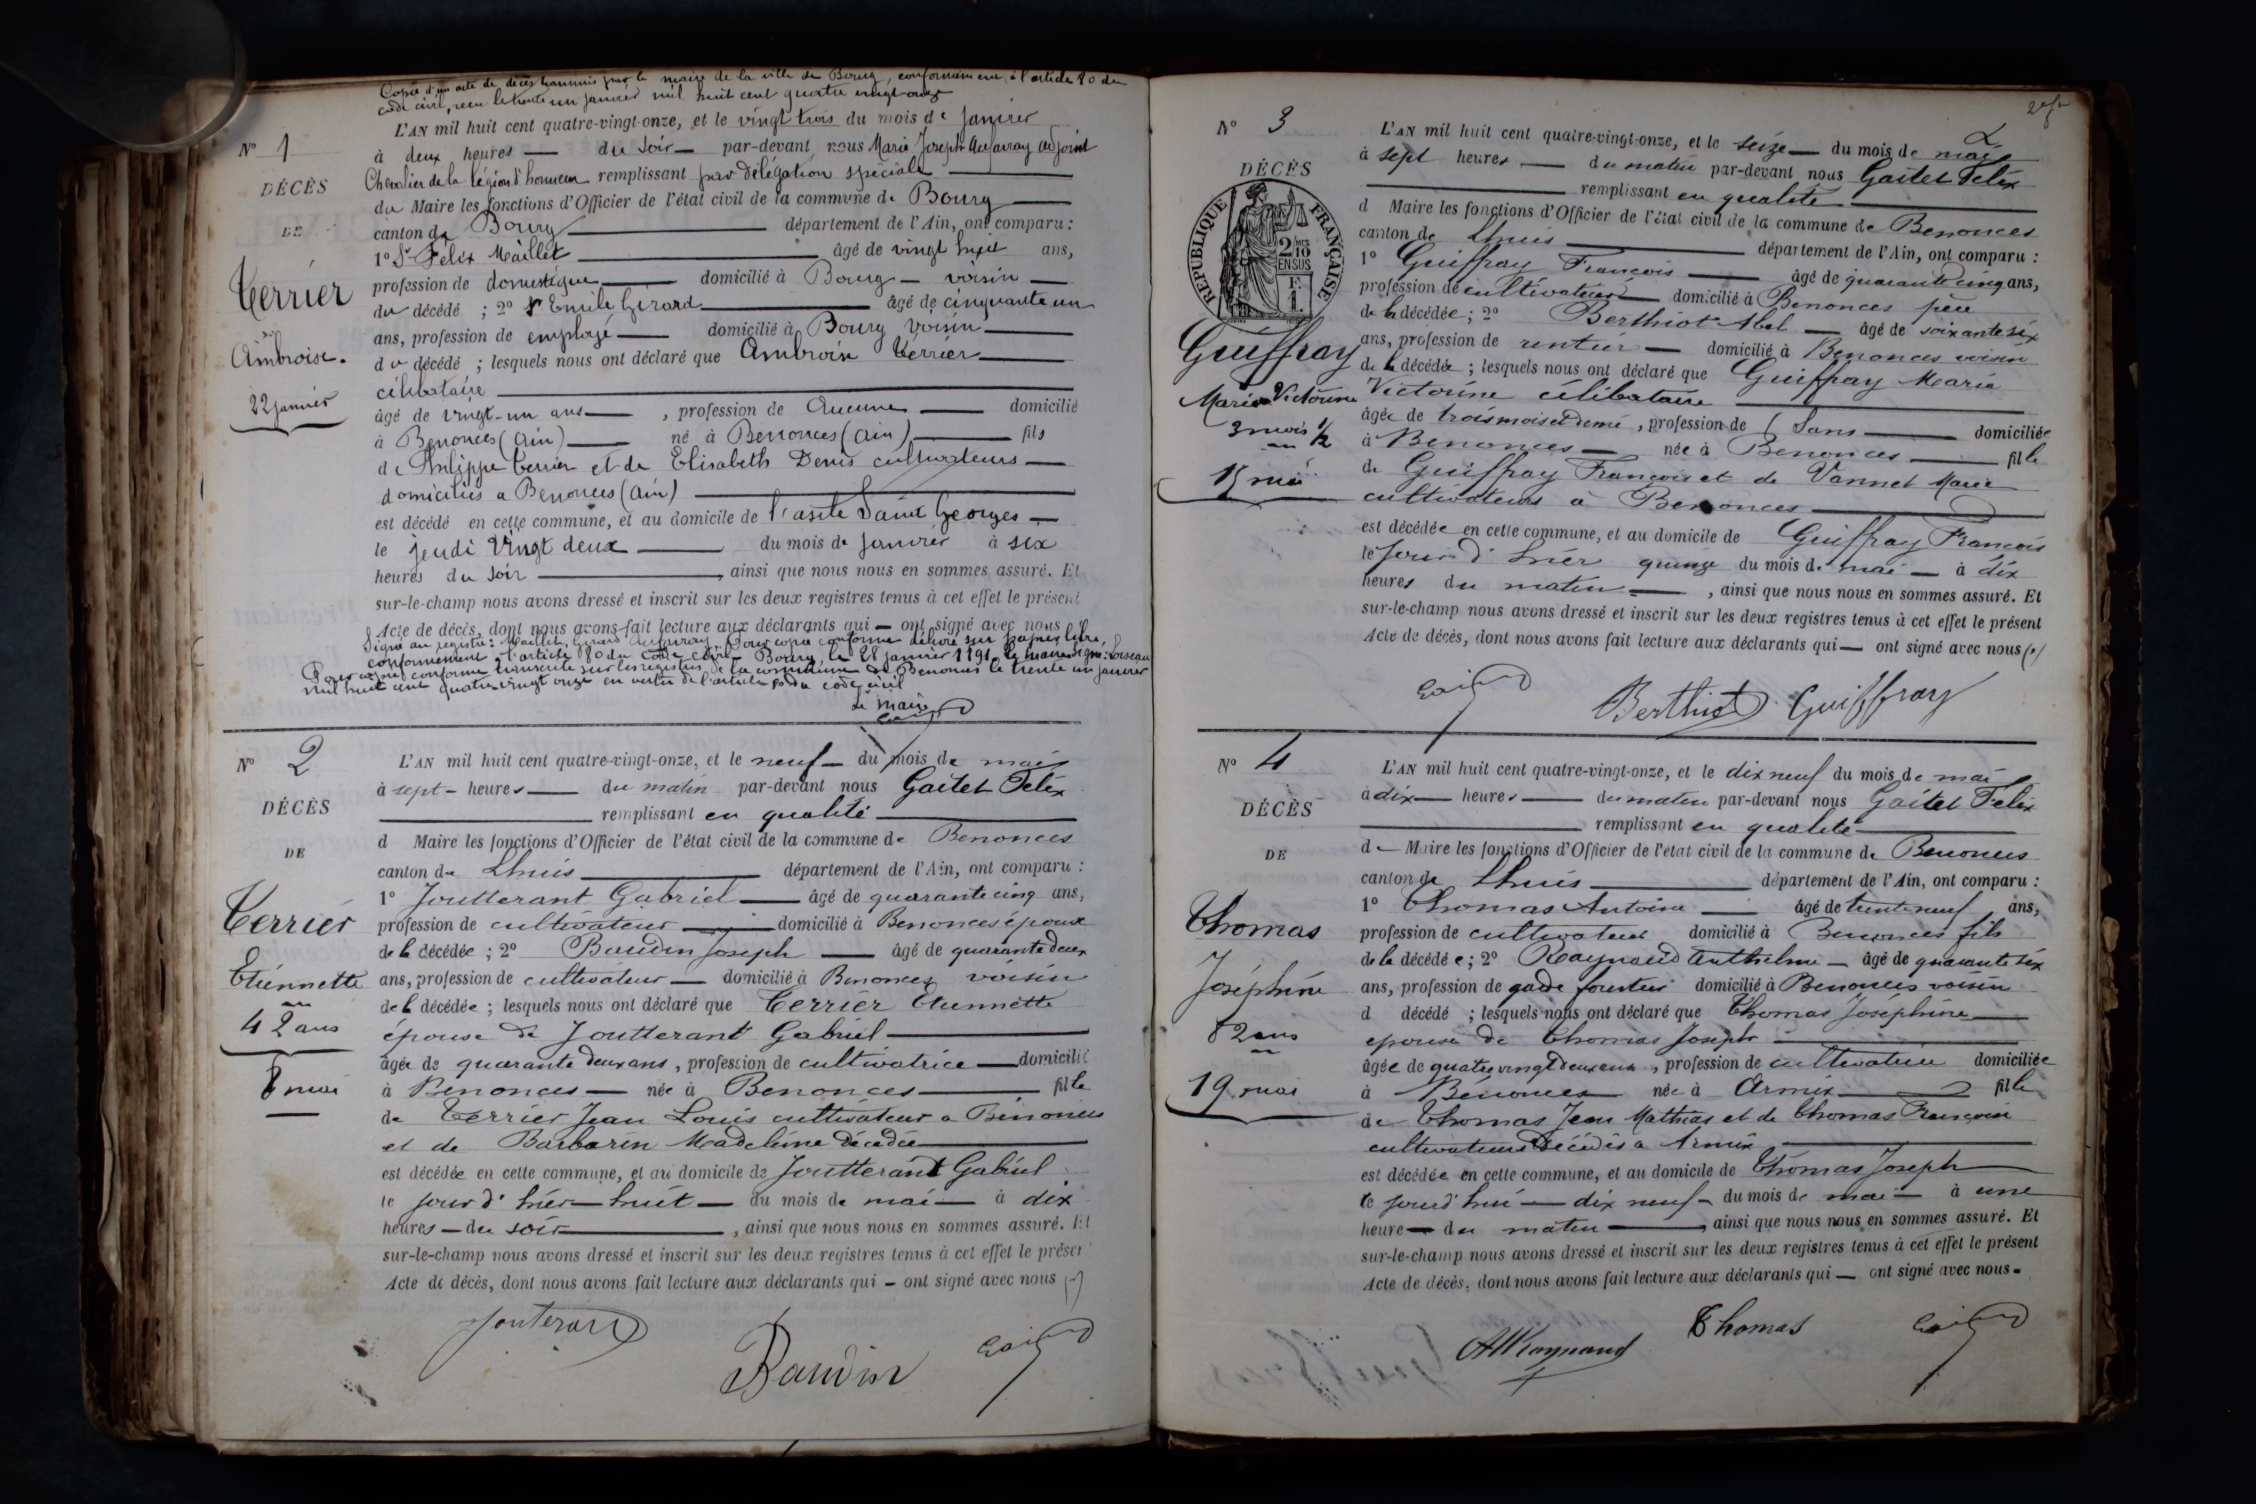 Copie d'un acte de décès transmis par le maire de la ville de Bourg, conformément à l'article 80 du
code civil, reçu le trente un janvier mil huit cent quatre vingt onze
N° 1
DÉCÈS
DE
Terrier
Ambroise.
22 janvier
L'AN mil huit cent quatre-vingt-onze, et le vingt trois du mois de janvier
à deux heures du soir par-devant nous Marie Joseph adjoint
Chevalier de la légion d'honneur remplissant par délégation spéciale
du Maire les fonctions d'Officier de l'état civil de la commune de Bourg
canton de Bourg département de l'Ain, ont comparu :
1° Sr Félix Maillet âgé de vingt huit ans,
profession de domestique domicilié à Bourg voisin
du décédé ; 2° Sr Emile Girard âgé de cinquante un
ans, profession de employé domicilié à Bourg voisin
du décédé ; lesquels nous ont déclaré que Ambroise Terrier
célibataire
âgé de vingt-un ans, profession de Aucune domicilié
à Benonces (Ain) né à Benonces (Ain) fils
de Philippe Terrier et de Elisabeth Denis cultivateurs
domiciliés à Benonces (Ain)
est décédé en cette commune, et au domicile de l'asile Saint Georges
le jeudi vingt deux du mois de janvier à six
heures du soir, ainsi que nous nous en sommes assuré. Et
sur-le-champ nous avons dressé et inscrit sur les deux registres tenus à cet effet le présent
Acte de décès, dont nous avons fait lecture aux déclarants qui ont signé avec nous
Signé au registre : Maillet, Girard Pour copie conforme délivré sur papier libre,
conformément à l'article 80 du code civil Bourg, le 28 janvier 1891, le maire signé : Loiseau
Pour copie conforme transcrite sur les registres de la commune de Benonces le trente un janvier
mil huit cent quatre vingt onze en vertu de l'article 80 du code civil
Le maire
N° 2
DÉCÈS
DE
Terrier
Etiennette
42 ans
8 mai
L'AN mil huit cent quatre-vingt-onze, et le neuf du mois de mai
à sept heures du matin par-devant nous Gaitet Félix
remplissant en qualité
d Maire les fonctions d'Officier de l'état civil de la commune de Benonces
canton de Lhuis département de l'Ain, ont comparu :
1° Joutterant Gabriel âgé de quarante cinq ans,
profession de cultivateur domicilié à Benonces époux
de la décédée ; 2° Baudin Joseph âgé de quarante deux
ans, profession de cultivateur domicilié à Benonces voisin
de la décédée ; lesquels nous ont déclaré que Terrier Etiennette
épouse de Joutterant Gabriel
âgée de quarante deux ans, profession de cultivatrice domicilié
à Benonces née à Benonces fille
de Terrier Jean Louis cultivateur a Benonces
et de Barbarin Madeleine décédée
est décédée en cette commune, et au domicile de Joutterant Gabriel
le jour d'hier huit du mois de mai à dix
heures du soir, ainsi que nous nous en sommes assuré. Et
sur-le-champ nous avons dressé et inscrit sur les deux registres tenus à cet effet le présen
Acte de décès, dont nous avons fait lecture aux déclarants qui ont signé avec nous
Jouterant
Baudin
N° 3
DÉCÈS
RÉPUBLIQUE FRANÇAISE
2/10 EN SUS
Guiffray
Marie Victorine
3 mois 1/2
15 mai
L'AN mil huit cent quatre-vingt-onze, et le seize du mois de mai
à sept heures du matin par-devant nous Gaitet Félix
remplissant en qualité
d Maire les fonctions d'Officier de l'état civil de la commune de Benonces
canton de Lhuis département de l'Ain, ont comparu :
1° Guiffray François âgé de quarante cinq ans,
profession de cultivateur domicilié à Benonces père
de la décédée ; 2° Berthiot Abel âgé de soixante six
ans, profession de rentier domicilié à Benonces voisin
de la décédée ; lesquels nous ont déclaré que Guiffray Marie
Victorine célibataire
âgée de trois mois et demi, profession de Sans domiciliée
à Benonces née à Benonces fille
de Guiffray François et de Vannet Marie
cultivateurs à Benonces
est décédée en cette commune, et au domicile de Guiffray François
le jour d'hier quinze du mois de mai à dix
heures du matin, ainsi que nous nous en sommes assuré. Et
sur-le-champ nous avons dressé et inscrit sur les deux registres tenus à cet effet le présent
Acte de décès, dont nous avons fait lecture aux déclarants qui ont signé avec nous
Berthiot Guiffray
N° 4
DÉCÈS
DE
Thomas
Joséphine
82 ans
19 mai
L'AN mil huit cent quatre-vingt-onze, et le dix neuf du mois de mai
à dix heures du matin par-devant nous Gaitet Félix
remplissant en qualité
de Maire les fonctions d'Officier de l'état civil de la commune de Benonces
canton de Lhuis département de l'Ain, ont comparu :
1° Thomas Antoine âgé de trente neuf ans,
profession de cultivateur domicilié à Benonces fils
de la décédée ; 2° Raynaud Anthelme âgé de quarante six
ans, profession de garde forestier domicilié à Benonces voisin
d décédé ; lesquels nous ont déclaré que Thomas Joséphine
epouse de Thomas Joseph
âgée de quatre vingt deux ans, profession de cultivatrice domiciliée
à Bénonces née à Armix fille
de Thomas Jean Mathias et de Thomas Françoise
cultivateurs décédés a Armix
est décédée en cette commune, et au domicile de Thomas Joseph
le jourd'hui dix neuf du mois de mai à une
heure du matin, ainsi que nous nous en sommes assuré. Et
sur-le-champ nous avons dressé et inscrit sur les deux registres tenus à cet effet le présent
Acte de décès, dont nous avons fait lecture aux déclarants qui ont signé avec nous
ARaynaud
Thomas